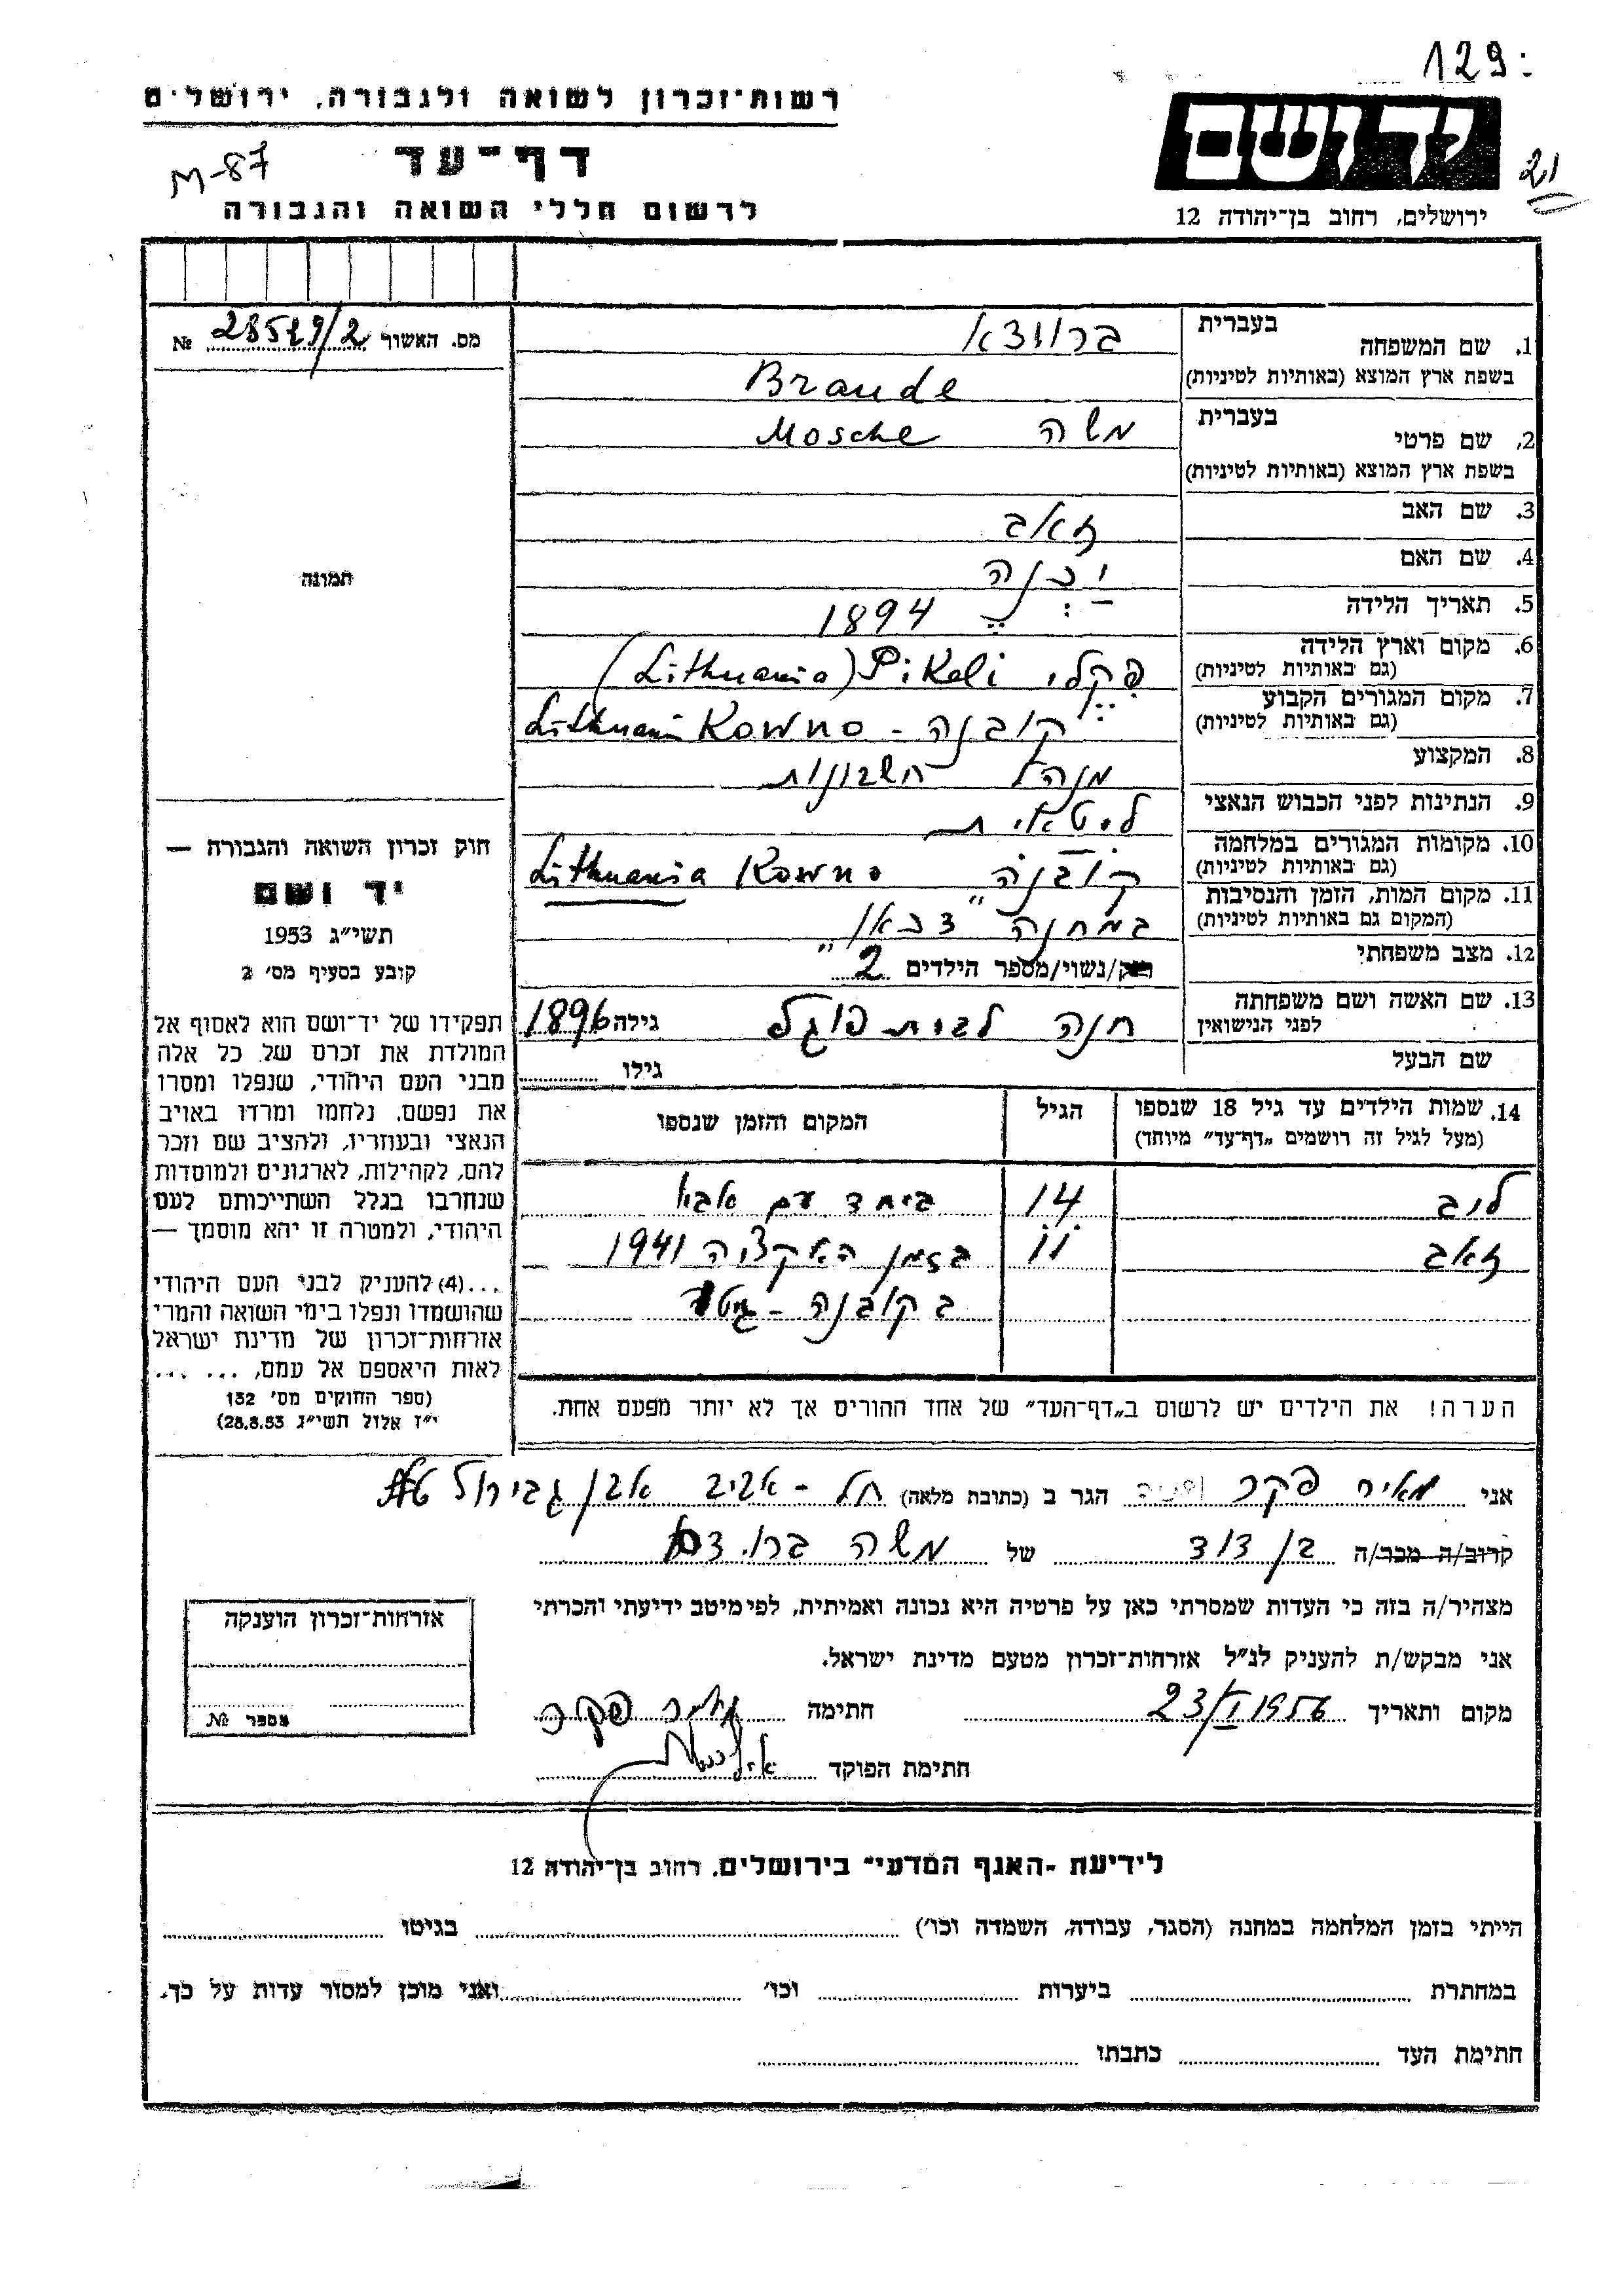 129
רשות־זכרון לשואה ולגבורה, ירושלים
יד ושם
M-87
דף־עד
21
לרשום חללי השואה והגבורה
ירושלים, רחוב בן־יהודה 12
מס. האשור № 
תמונה
חוק זכרון השואה והגבורה —
יד ושם
תשי״ג 1953
קובע בסעיף מס׳ 2
תפקידו של יד־ושם הוא לאסוף אל
המולדת את זכרם של כל אלה
מבני העם היהודי, שנפלו ומסרו
את נפשם, נלחמו ומרדו באויב
הנאצי ובעוזריו, ולהציב שם וזכר
להם, לקהילות, לארגונים ולמוסדות
שנחרבו בגלל השתייכותם לעם
היהודי, ולמטרה זו יהא מוסמך —
...(4) להעניק לבני העם היהודי
שהושמדו ונפלו בימי השואה והמרי
אזרחות־זכרון של מדינת ישראל
לאות היאספם אל עמם, ... ...
(ספר החוקים מס׳ 132
י״ז אלול תשי״ג 28.8.53)
1. שם המשפחה בעברית
Braude בשפת ארץ המוצא (באותיות לטיניות)
2. שם פרטי בעברית משה Mosche
בשפת ארץ המוצא (באותיות לטיניות)
3. שם האב זאב
4. שם האם
5. תאריך הלידה 1894
6. מקום וארץ הלידה (גם באותיות לטיניות) פקלי Pikeli (Lithuania)
7. מקום המגורים הקבוע (גם באותיות לטיניות) קובנה - Kowno
8. המקצוע מנהל חשבונות
9. הנתינות לפני הכבוש הנאצי ליטאית
10. מקומות המגורים במלחמה (גם באותיות לטיניות) קובנה Kowno Lithuania
11. מקום המות, הזמן והנסיבות (המקום גם באותיות לטיניות) במחנה "דכאו"
12. מצב משפחתי רוק/נשוי/מספר הילדים 2
13. שם האשה ושם משפחתה לפני הנישואין חנה לבית פוגל גילה 1896
שם הבעל גילו
14. שמות הילדים עד גיל 18 שנספו (מעל לגיל זה רושמים „דף־עד״ מיוחד) הגיל המקום והזמן שנספו
לוב 14 ביחד עם אבא
זאב 11 בזמן האקציה 1941
בקובנה -
הערה! את הילדים יש לרשום ב„דף־העד״ של אחד ההורים אך לא יותר מפעם אחת.
אני מאיר פקר הגר ב (כתובת מלאה) תל - אביב אבן גבירול
קרוב/ה מכר/ה בן דוד של משה
מצהיר/ה בזה כי העדות שמסרתי כאן על פרטיה היא נכונה ואמיתית, לפי מיטב ידיעתי והכרתי
אני מבקש/ת להעניק לנ״ל אזרחות־זכרון מטעם מדינת ישראל.
אזרחות־זכרון הוענקה
מספר №
מקום ותאריך 23/I 1956 חתימה מאיר פקר
חתימת הפוקד
לידיעת ־האגף המדעי־ בירושלים, רחוב בן־יהודה 12
הייתי בזמן המלחמה במחנה (הסגר, עבודה, השמדה וכו׳) בגיטו
במחתרת ביערות וכו׳ ואני מוכן למסור עדות על כך.
חתימת העד כתבתו